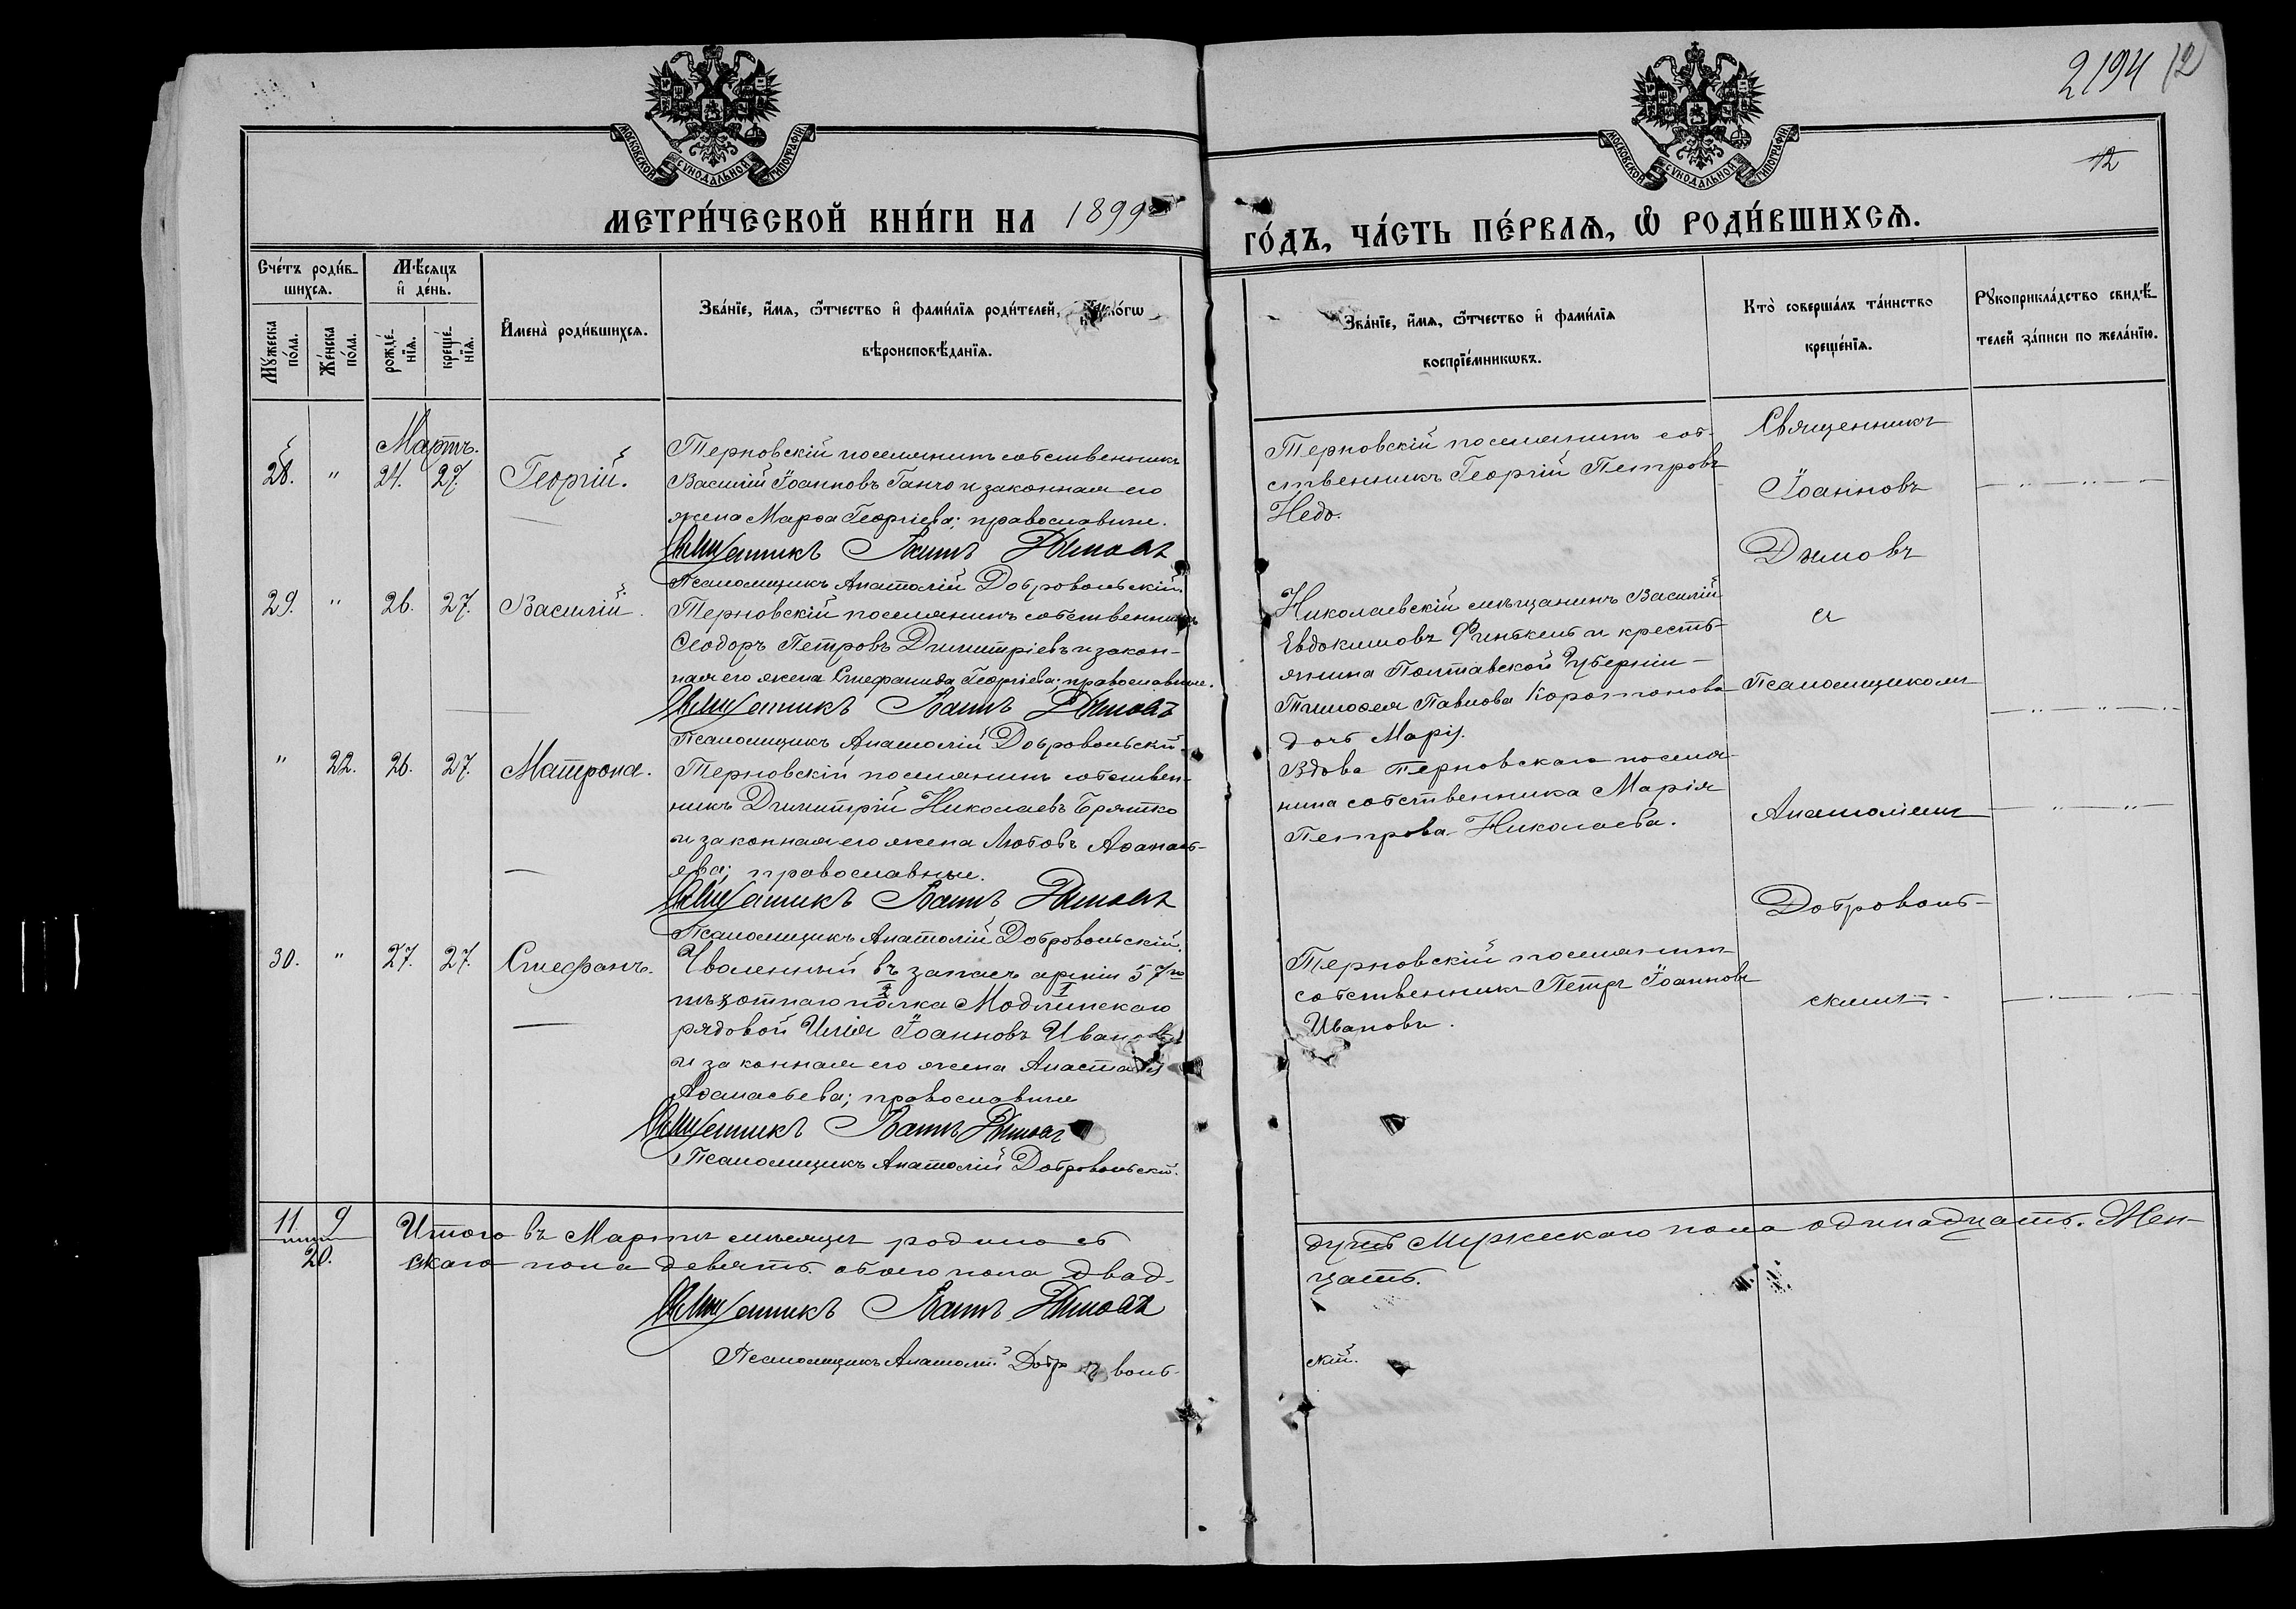 2194 12
12
МОСКОВСКОЙ СѴНОДАЛЬНОЙ ТИПОГРАФІИ
МОСКОВСКОЙ СѴНОДАЛЬНОЙ ТИПОГРАФІИ
МЕТРИ́ЧЕСКОЙ КНИ́ГИ НА 1899
ГО́ДЪ, ЧА́СТЬ ПЕ́РВАЯ, Ѡ РОДИ́ВШИХСЯ.
Сче́тъ роди́в-
шихся.
Мѣ́сяцъ
и де́нь.
Му́жеска
по́ла.
Же́нска
по́ла.
рожде́-
нія.
креще́-
нія.
Имена̀ роди́вшихся.
Зва́ніе, и́мя, ѻ́тчество и фами́лія роди́телей,
вѣроисповѣ́данія.
Зва́ніе, и́мя, ѻ́тчество и фами́лія
воспріе́мникѡвъ.
Кто̀ соверша́лъ та́инство
креще́нія.
Рꙋкоприкла́дство свидѣ́-
телей за́писи по жела́нію.
Мартъ.
28. " 24. 27. Георгій.
Терновскій поселянинъ собственникъ
Василій Іоанновъ Ганчо и законная его
жена Марѳа Георгіева; православные.
Священникъ Іоаннъ Дымовъ
Псаломщикъ Анатолій Добровольскій.
Терновскій поселянинъ соб-
ственникъ Георгій Петровъ
Недо.
Священникъ
Іоанновъ
Дымовъ
съ
Псаломщикомъ
Анатоліемъ
Доброволь-
скимъ.
29. " 26. 27. Василій.
Терновскій поселянинъ собственникъ
Ѳеодоръ Петровъ Димитріевъ и закон-
ная его жена Стефанида Георгіева; православные.
Священникъ Іоаннъ Дымовъ
Псаломщикъ Анатолій Добровольскій.
Николаевскій мѣщанинъ Василій
Евдокимовъ и кресть-
янина Полтавской Губерніи
Тимоѳея Павлова
дочь Марія.
" 22. 26. 27. Матрона.
Терновскій поселянинъ собствен-
никъ Димитрій Николаевъ Братко
и законная его жена Любовь Аѳанась-
ева; православные.
Священникъ Іоаннъ Дымовъ
Псаломщикъ Анатолій Добровольскій.
Вдова Терновскаго поселя-
нина собственника Марія
Петрова Николаева.
30. " 27. 27. Стефанъ.
Уволенный въ запасъ арміи 57го
пѣхотнаго полка Модлинскаго
рядовой Илія Іоанновъ Ивановъ
и законная его жена Анастасія
Аѳанасьева; православные
Священникъ Іоаннъ Дымовъ
Псаломщикъ Анатолій Добровольскій.
Терновскій поселянинъ
собственникъ Петръ Іоанновъ
Ивановъ.
11. 9
20.
Итого въ Мартѣ мѣсяцѣ родилось душъ Мужескаго пола одинадцать. Жен-
скаго пола девять. обоего пола двад-цать.
Священникъ Іоаннъ Дымовъ
Псаломщикъ Анатолій Доброволь-скій.